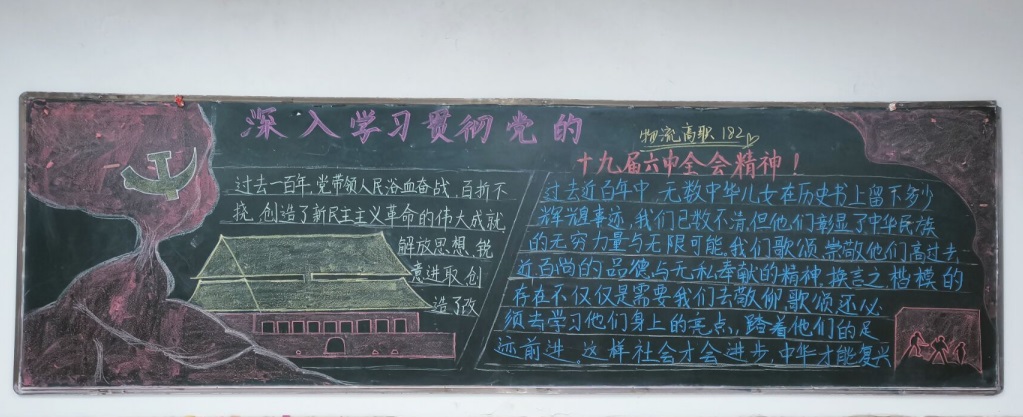 深入学习贯彻党的
物流高职182
十九届六中全会精神！
过去一百年，党带领人民浴血奋战、百折不
挠，创造了新民主主义革命的伟大成就
解放思想、锐
意进取，创
造了改
过去近百年中，无数中华儿女在历史书上留下多少
事迹，我们已数不清，但他们彰显了中华民族
的无穷力量与无限可能，我们歌颂、崇敬他们高过去
近百尚的品德与无私奉献的精神，换言之，楷模的
存在不仅仅是需要我们去敬仰歌颂，还必
须去学习他们身上的亮点，踏着他们的足
迹前进，这样社会才会进步，中华才能复兴